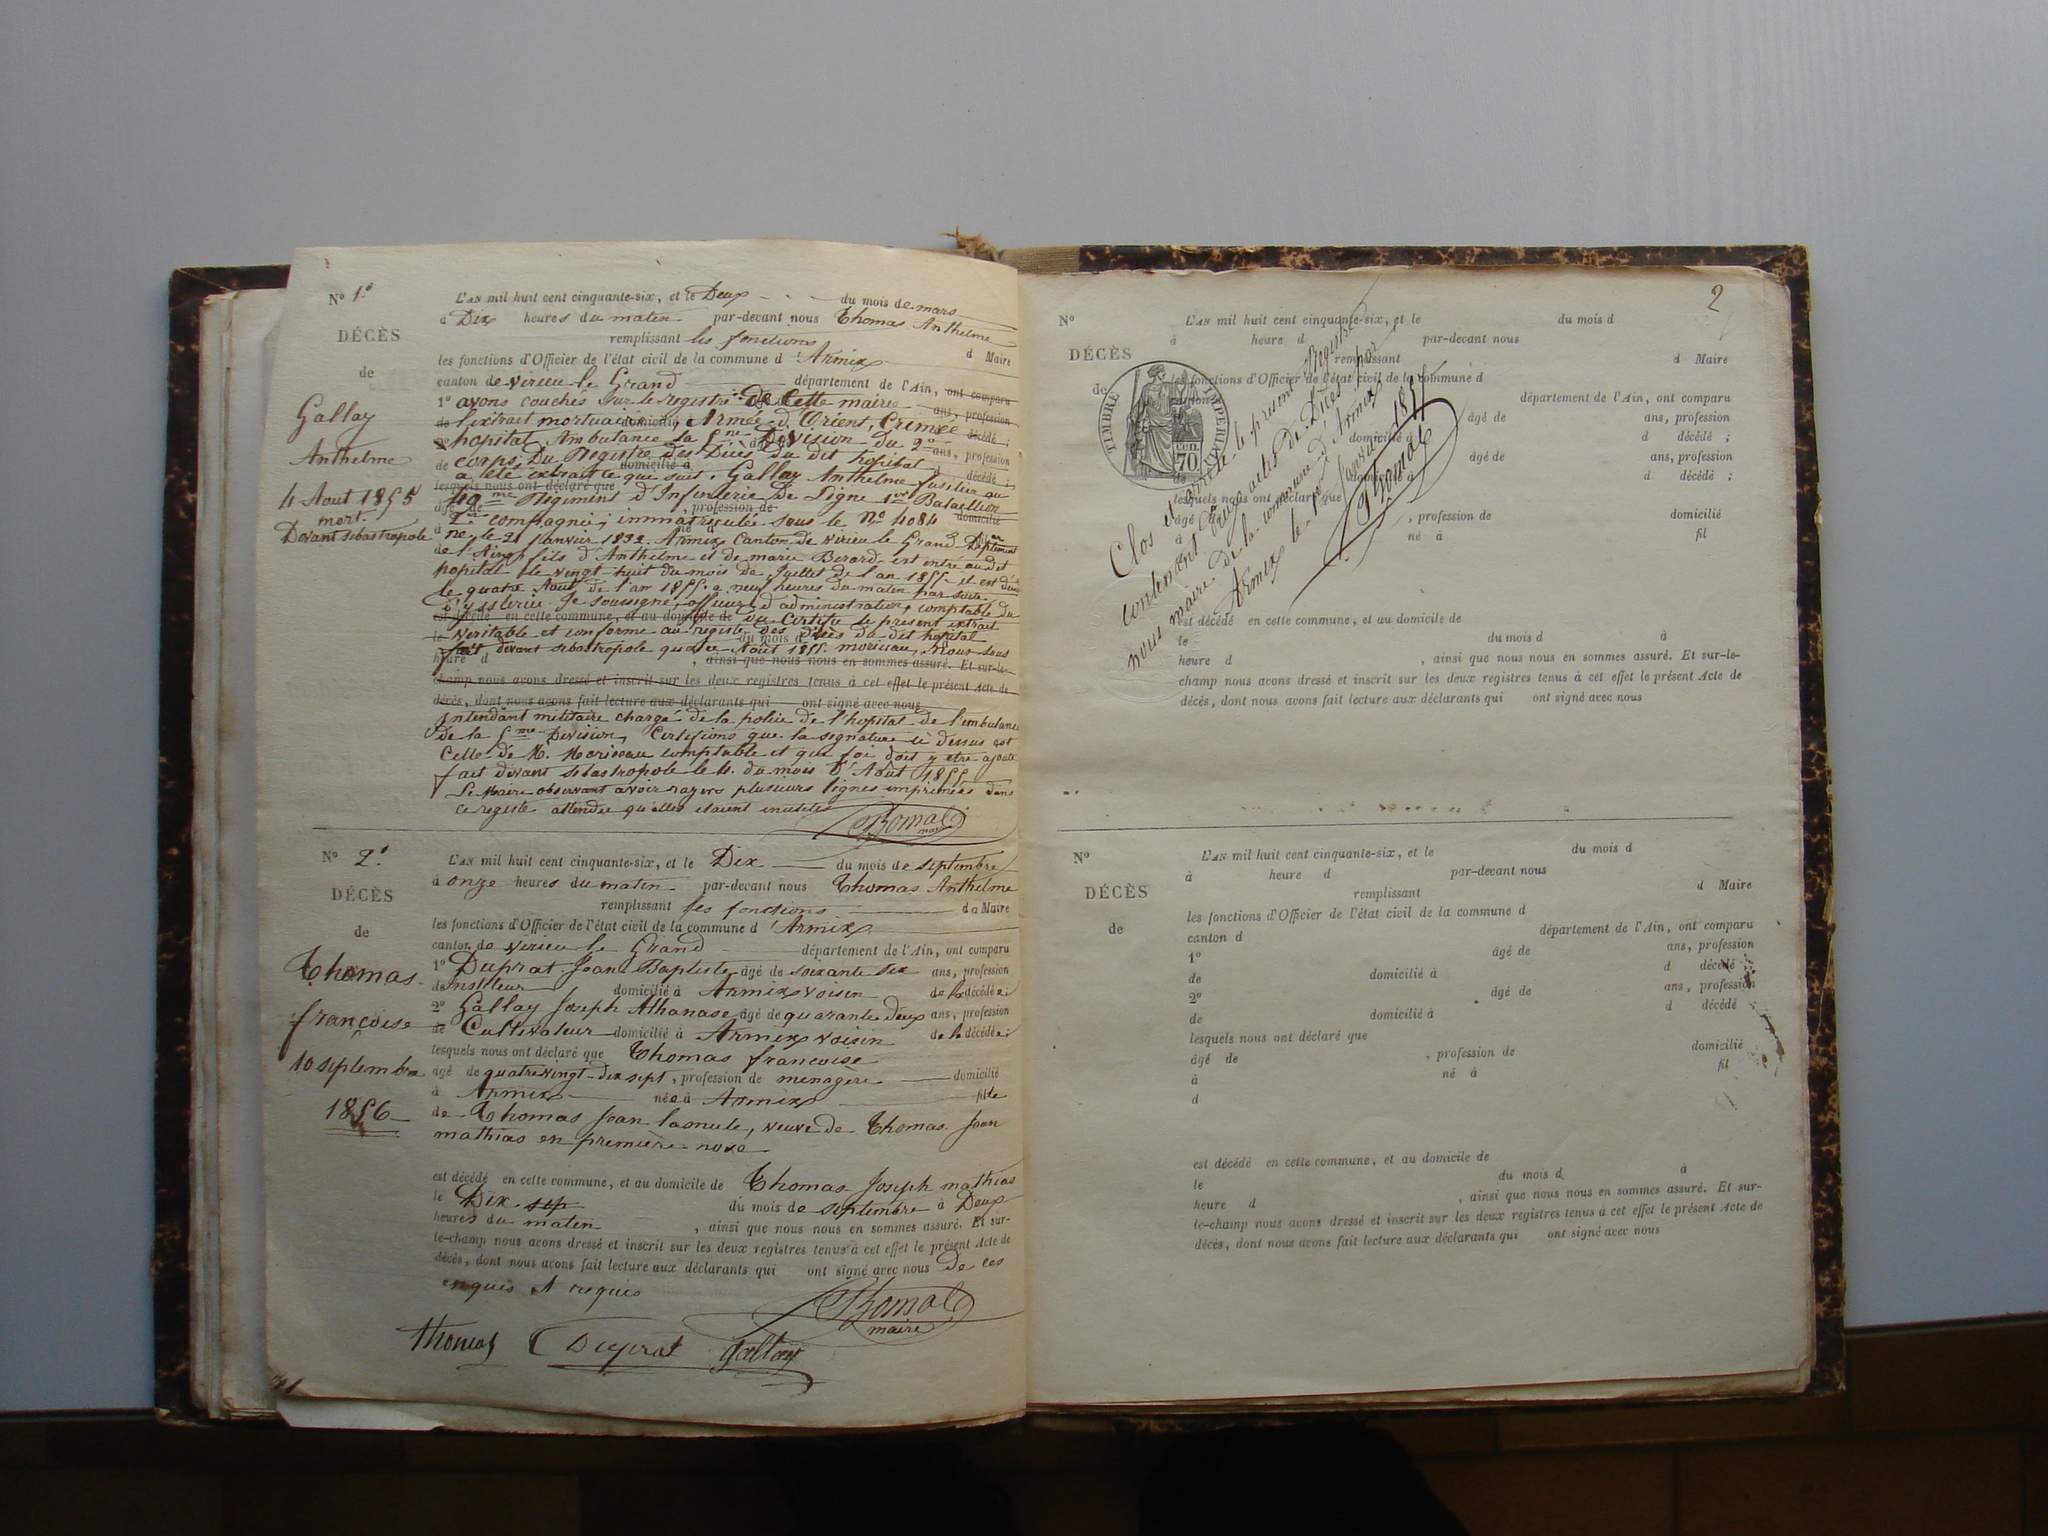 N° 1.°
DÉCÈS
de
Gallay
Anthelme
4 Aout 1855
mort
Devant sebastropole
L'AN mil huit cent cinquante-six, et le Deux du mois de mars
à Dix heures du matin par-devant nous Thomas Anthelme
remplissant les fonctions d Maire
les fonctions d'Officier de l'état civil de la commune d'Armix
canton de virieu le Grand département de l'Ain, ont comparu
1° avons couches sur le registre de Cette mairie ans, profession
de l'extrait mortuaire domicilié Armée d'Orient, Crimée décédé ;
hopital Ambulance la 5me Division du 2e ans, profession
de corps; Du Registre des Décès du dit hopital d décédé ;
domicilié à
a été extrait ce que suit. Gallay Anthelme fusilier au
lesquels nous ont déclaré que
49me Régiment d'Infenterie de Ligne 1er Bataillion
âgé de , profession de domicilié
2me compagnie; immatriculée sous le No 4084
à né le 21 Janvier 1832. Armix Canton de virieu le Grand Département
de l'Ain fils d'Anthelme et de marie Berard est entré au dit
hopital le vingt-huit du mois de Juillet de l'an 1855 et est décédé
le quatre Aout de l'an 1855. a neuf heures du matin par suite
Je soussigné, officier d'administration, comptable du
est décédé en cette commune, et au domicile de
du Certifie le present extrait
le veritable et conforme au registe des décès du dit hopital
du mois d
fait devant sebastropole quatre Aout 1855. moriceau, Nous sous
heure d , ainsi que nous nous en sommes assuré. Et sur-le-
champ nous avons dressé et inscrit sur les deux registres tenus à cet effet le présent Acte de
décès, dont nous avons fait lecture aux déclarants qui ont signé avec nous
intendant militaire chargé de la police de l'hopital de l'embulance
de la 5me Division, Certifions que la signature ci dessus est
Celle de M. Moriceau comptable et que foi doit y etre ajoute
fait devant sebastropole le 4. du mois d'Aout 1855
Le Maire observant avoir rayers plusieurs lignes imprimées dans
ce registe attendu qu'elles etaient inutiles
Thomas
maire
N° 2.°
DÉCÈS
de
Thomas
françoise
10 septembre
1856
L'AN mil huit cent cinquante-six, et le Dix du mois de septembre
à onze heures du matin par-devant nous Thomas Anthelme
remplissant les fonctions d a Maire
les fonctions d'Officier de l'état civil de la commune d'Armix
canton de virieu le Grand département de l'Ain, ont comparu
1° Duprat Jean Baptiste âgé de soixante six ans, profession
de domicilié à Armix voisin de la décédée ;
2° Gallay Joseph Athanase âgé de quarante deux ans, profession
de Cultivateur domicilié à Armix voisin de la décédée ;
lesquels nous ont déclaré que Thomas françoise
âgé de quatre vingt-dix sept, profession de menagere domicilié
à Armix née à Armix fille
de Thomas Jean veuve de Thomas Jean
mathias en première
est décédé en cette commune, et au domicile de Thomas Joseph mathias
le Dix sep du mois de septembre à Deux
heures du matin , ainsi que nous nous en sommes assuré. Et sur-
le-champ nous avons dressé et inscrit sur les deux registres tenus à cet effet le présent Acte de
décès, dont nous avons fait lecture aux déclarants qui ont signé avec nous de ces
enquis et requis
Thomas
maire
Thomas Duprat Gallay
2
N°
DÉCÈS
de
L'AN mil huit cent cinquante-six, et le du mois d
à heure d par-devant nous
remplissant d Maire
les fonctions d'Officier de l'état civil de la commune d
canton département de l'Ain, ont comparu
âgé de ans, profession
domicilié à d décédé ;
âgé de ans, profession
de domicilié à d décédé ;
lesquels nous ont déclaré que
âgé de , profession de domicilié
à né à fil
TIMBRE IMPERIAL
70 CEN.
Clos et arrêté le présent Registre
contenant deux actes de Décès par
nous maire de la commune d'Armix
Armix le 1er Janvier 1857
Thomas
est décédé en cette commune, et au domicile de
le du mois d à
heure d , ainsi que nous nous en sommes assuré. Et sur-le-
champ nous avons dressé et inscrit sur les deux registres tenus à cet effet le présent Acte de
décès, dont nous avons fait lecture aux déclarants qui ont signé avec nous
N°
DÉCÈS
de
L'AN mil huit cent cinquante-six, et le du mois d
à heure d par-devant nous
remplissant d Maire
les fonctions d'Officier de l'état civil de la commune d
canton d département de l'Ain, ont comparu
1° âgé de ans, profession
de domicilié à d décédé ;
2° âgé de ans, profession
de domicilié à d décédé
lesquels nous ont déclaré que
âgé de , profession de domicilié
à né à fil
d
est décédé en cette commune, et au domicile de
le du mois d à
heure d , ainsi que nous nous en sommes assuré. Et sur-
le-champ nous avons dressé et inscrit sur les deux registres tenus à cet effet le présent Acte de
décès, dont nous avons fait lecture aux déclarants qui ont signé avec nous